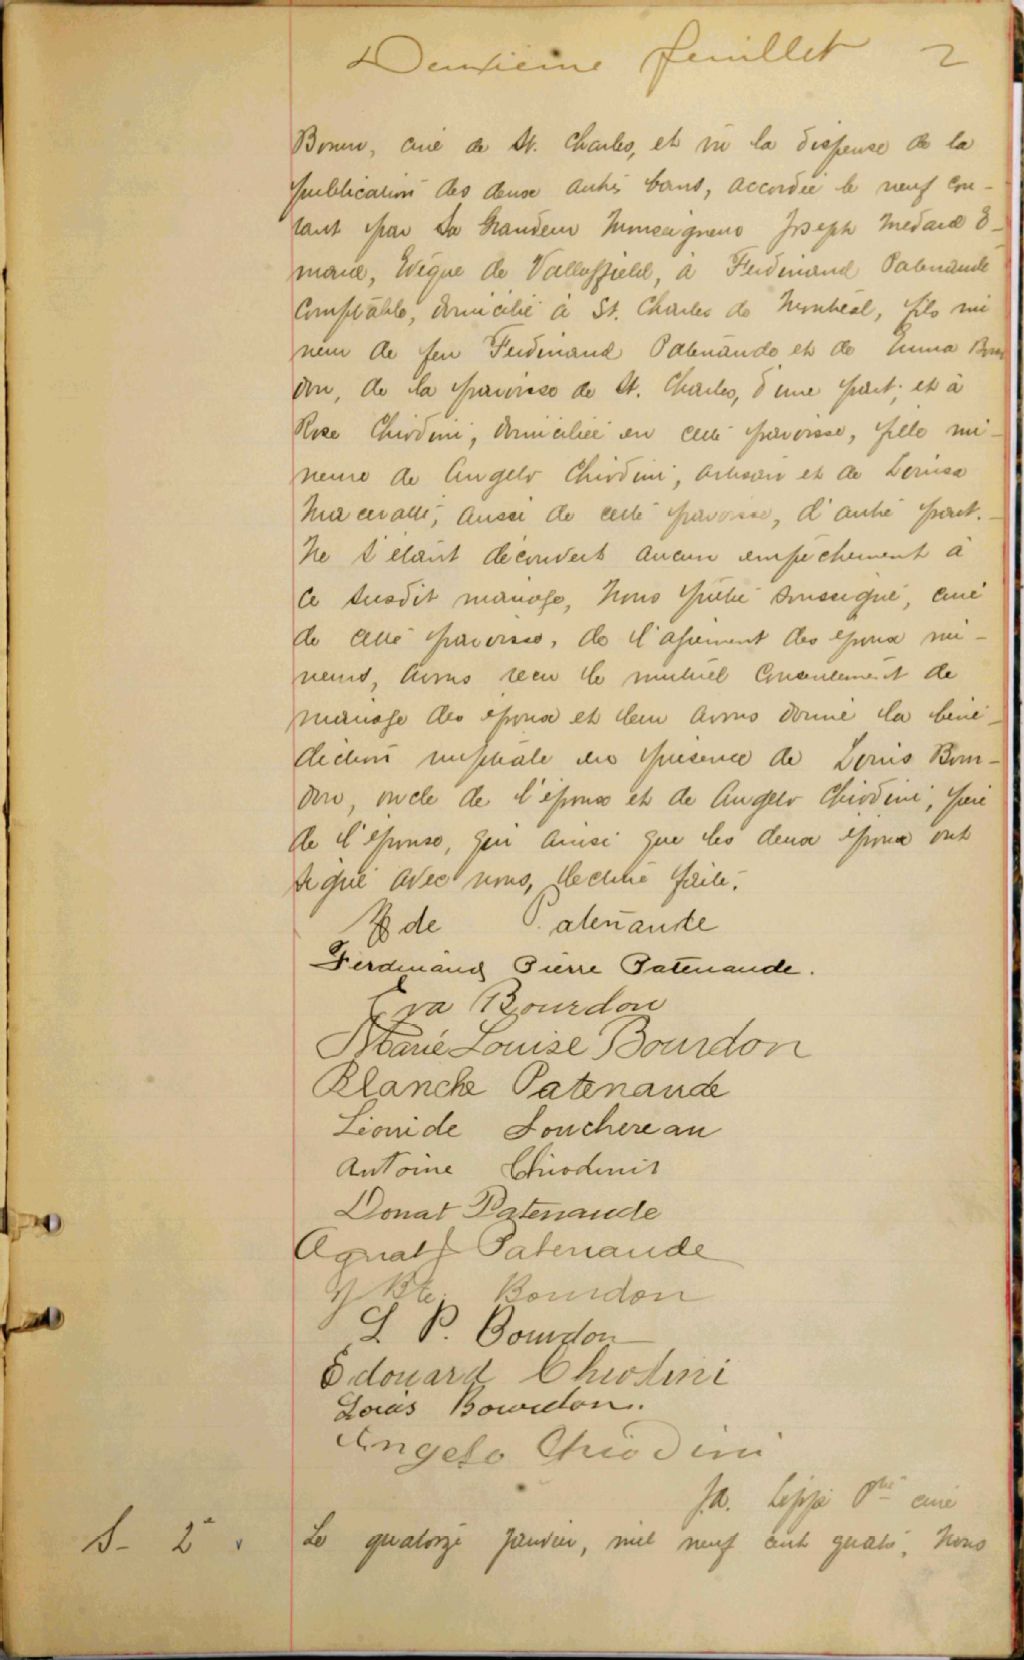 Deuxième feuillet 2
curé de St. Charles, et vu la dispense de la
publication des deux autres bans, accordée le neuf cou-
rant par Sa Grandeur Monseigneur Joseph Médard E-
mard, Evêque de Valleyfield, à Ferdinand Patenaude
Comptable, domicilié à St. Charles de Montréal, fils mi
neur de feu Ferdinand Patenaude et de Emma Bour
don, de la paroisse de St. Charles, d'une part; et à
Rose Chiodini, domiciliée en cette paroisse, fille mi-
neure de Angelo Chiodini, artisan et de Louisa
aussi de cette paroisse, d'autre part.
Ne s'étant découvert aucun empêchement à
ce susdit mariage, Nous prêtre soussigné, curé
de cette paroisse, de l'agrément des époux mi-
neurs, avons reçu le mutuel consentement de
mariage des époux et leur avons donné la béné-
diction nuptiale en présence de Louis Bour-
don, oncle de l'époux et de Angelo Chiodini, père
de l'épouse, qui ainsi que les deux époux ont
signé avec nous, lecture faite.
Patenaude
Ferdinand Pierre Patenaude.
Eva Bourdon
Marie Louise Bourdon
Blanche Patenaude
Léonide Souchereau
Antoine Chiodini
Donat Patenaude
Patenaude
J Bte. Bourdon
L. P. Bourdon
Edouard Chiodini
Louis Bourdon.
Angelo Chiodini
J.A. Lippé Ptre curé
S- 2e Le quatorze janvier, mil neuf cent quatre, Nous